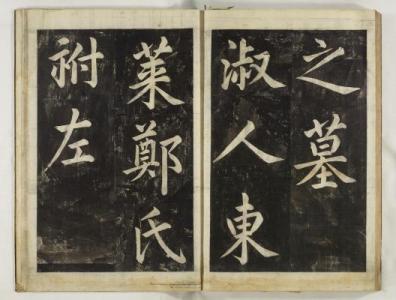 之墓
淑人東
萊鄭氏
祔左